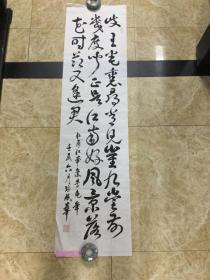 岐王宅裏尋常見崔九堂前
幾度聞正是江南好風景落
花時節又逢君
杜甫江南逢李龜年
六月